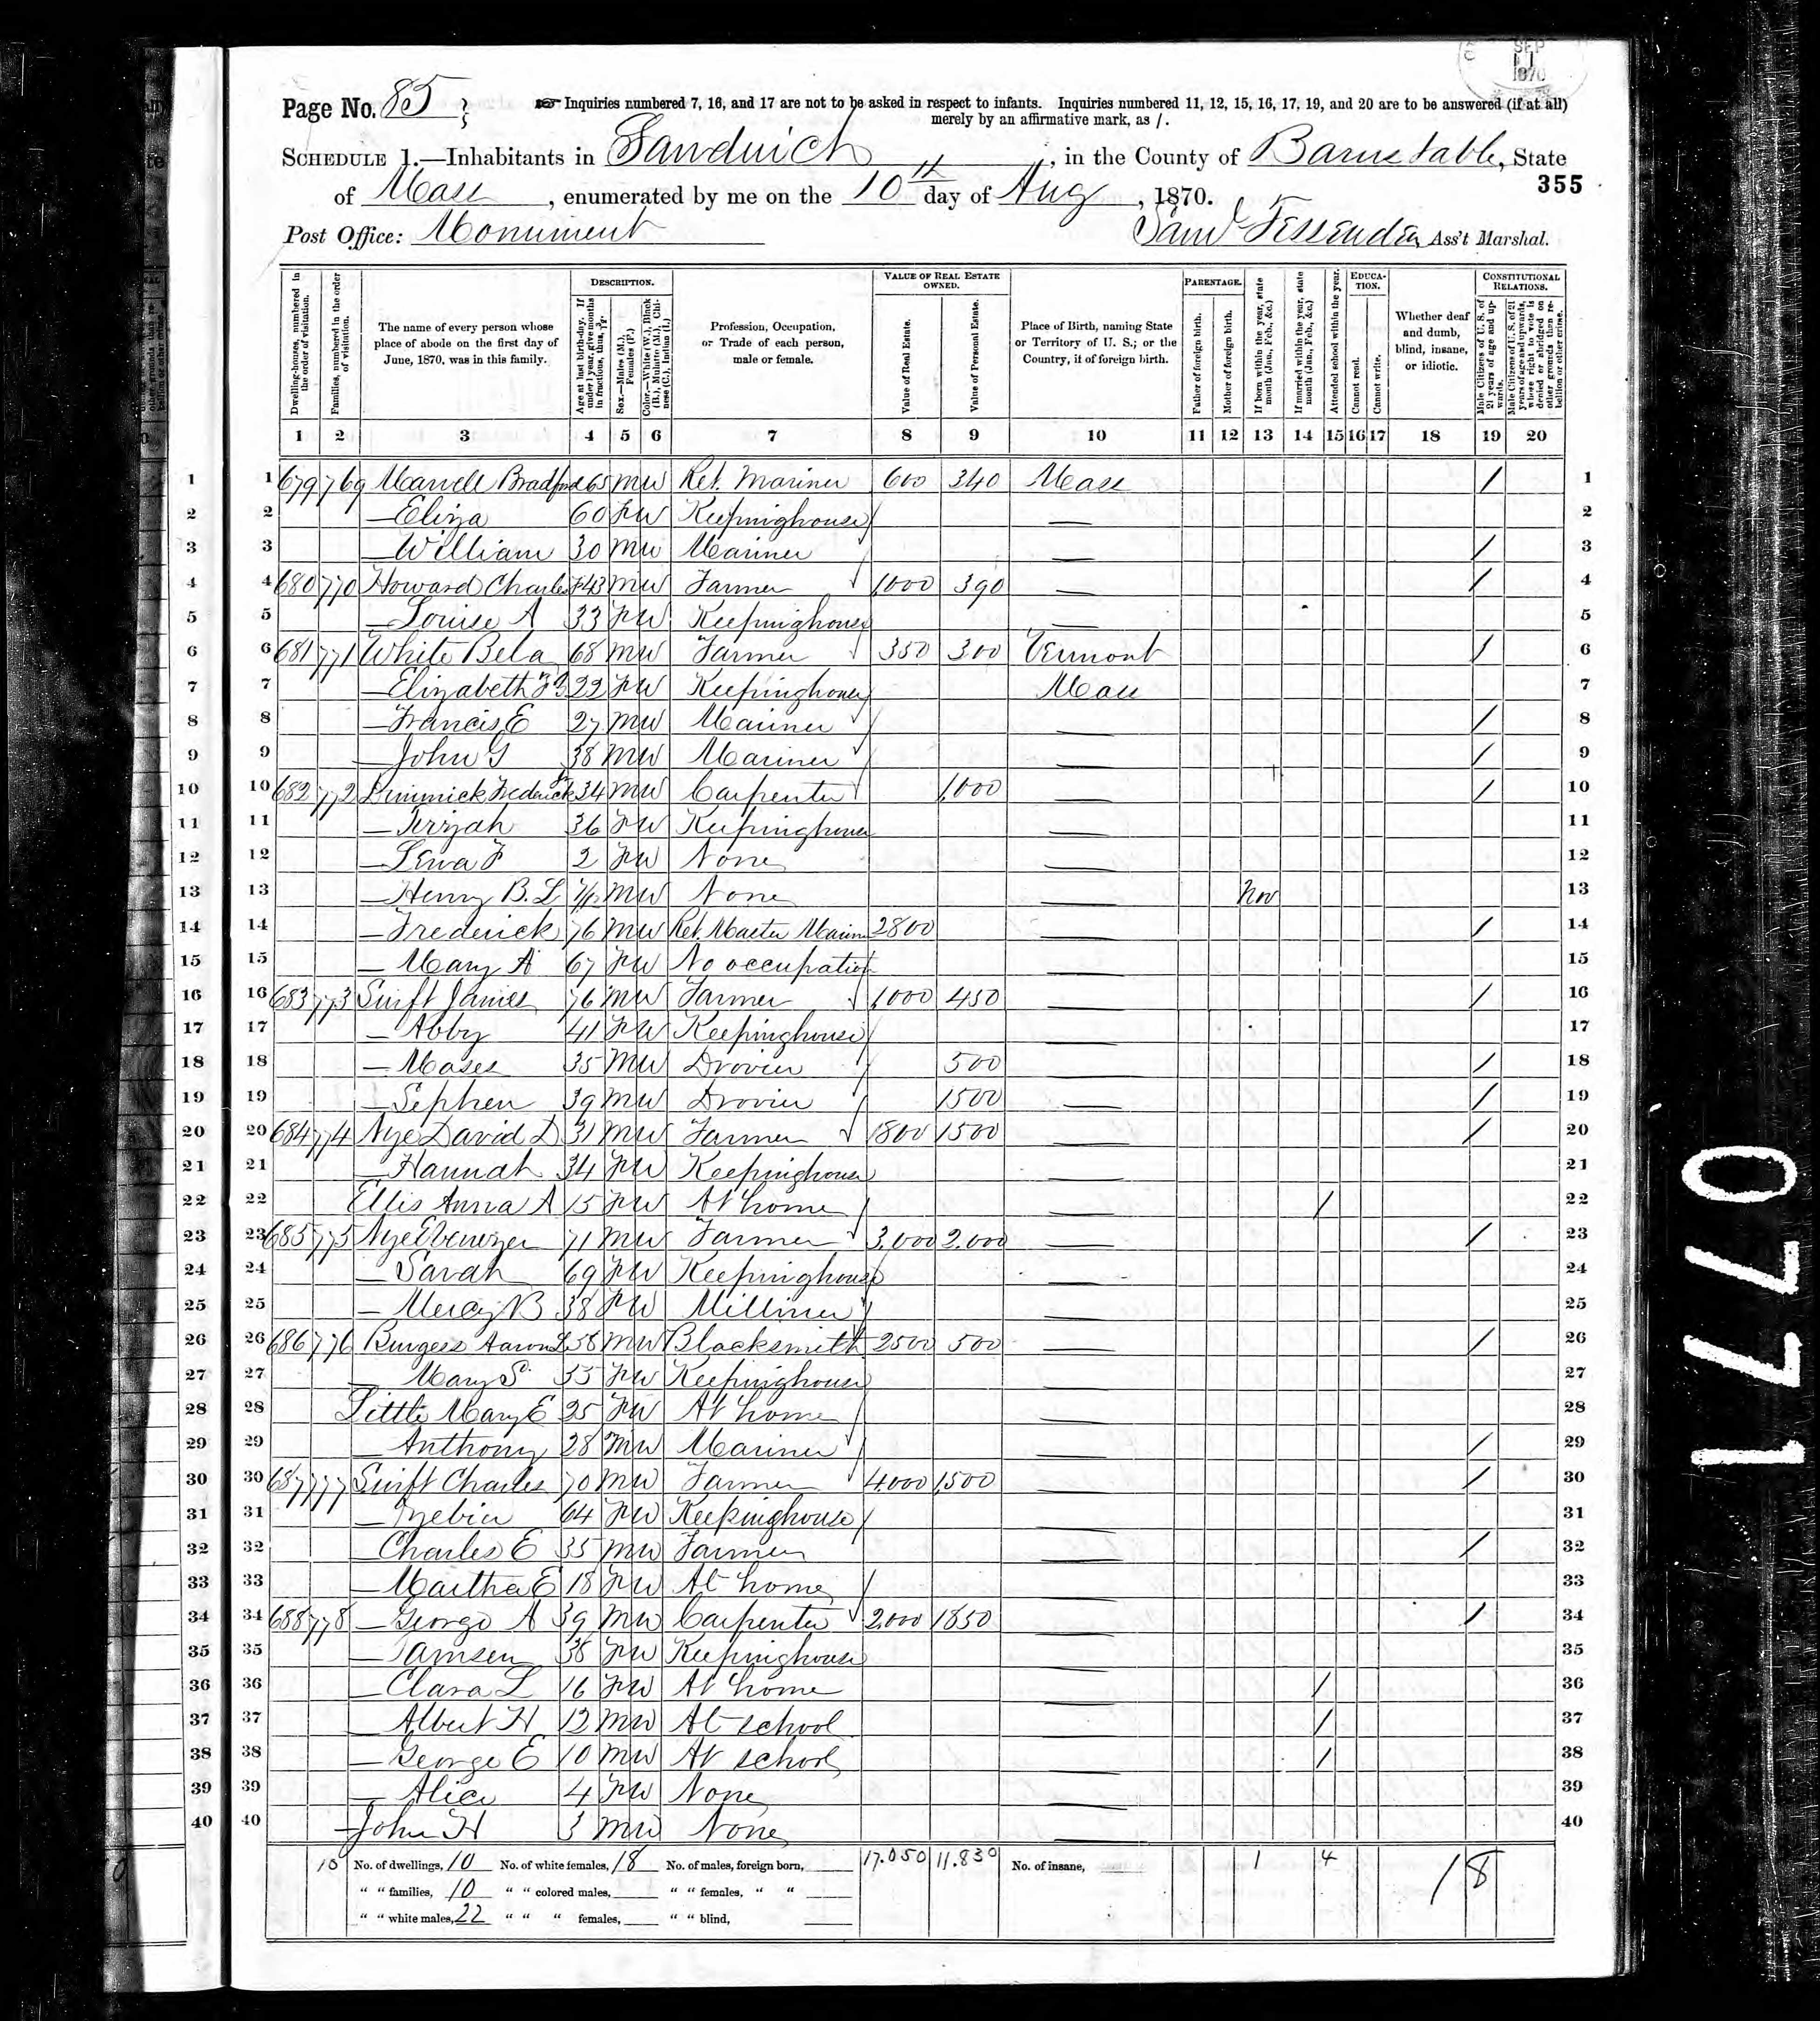 SEP
11
1870
Page No. 85
Inquiries numbered 7, 16, and 17 are not to be asked in respect to infants. Inquiries numbered 11, 12, 15, 16, 17, 19, and 20 are to be answered (if at all)
merely by an affirmative mark, as /.
SCHEDULE 1.—Inhabitants in Sandwich, in the County of Barnstable, State
of Mass, enumerated by me on the 10th day of Aug, 1870.
355
Post Office: Monument
Saml Fessenden, Ass't Marshal.
Dwelling-houses, numbered in the order of visitation.
Families, numbered in the order of visitation.
The name of every person whose place of abode on the first day of June, 1870, was in this family.
DESCRIPTION.
Age at last birth-day. If under 1 year, give months in fractions, thus, 3/12.
Sex.—Males (M.), Females (F.)
Color.—White (W.), Black (B.), Mulatto (M.), Chinese (C.), Indian (I.)
Profession, Occupation, or Trade of each person, male or female.
VALUE OF REAL ESTATE OWNED.
Value of Real Estate.
Value of Personal Estate.
Place of Birth, naming State or Territory of U. S.; or the Country, if of foreign birth.
PARENTAGE.
Father of foreign birth.
Mother of foreign birth.
If born within the year, state month (Jan., Feb., &c.)
If married within the year, state month (Jan., Feb., &c.)
Attended school within the year.
EDUCATION.
Cannot read.
Cannot write.
Whether deaf and dumb, blind, insane, or idiotic.
CONSTITUTIONAL RELATIONS.
Male Citizens of U. S. of 21 years of age and upwards.
Male Citizens of U. S. of 21 years of age and upwards, whose right to vote is denied or abridged on other grounds than rebellion or other crime.
1 2 3 4 5 6 7 8 9 10 11 12 13 14 15 16 17 18 19 20
1 679 769 Bradford 65 M W Ret. Mariner 600 340 Mass / 1
2 — Eliza 60 F W Keepinghouse — 2
3 — William 30 M W Mariner — / 3
4 680 770 Howard Charles 43 M W Farmer 1,000 390 — / 4
5 — Louise A 33 F W Keepinghouse — 5
6 681 771 White Bela 68 M W Farmer 350 300 Vermont / 6
7 — Elizabeth 22 F W Keepinghouse Mass 7
8 — Francis E 27 M W Mariner — / 8
9 — John G 38 M W Mariner — / 9
10 682 772 Dimmick Frederick 34 M W Carpenter 1,000 — / 10
11 — 36 F W Keepinghouse — 11
12 — F 2 F W None — 12
13 — Henry B. L M W None — Nov 13
14 — Frederick 76 M W Ret. Master Marin 2800 — / 14
15 — Mary A 67 F W No occupation — 15
16 683 773 Swift James 76 M W Farmer 1000 450 — / 16
17 — Abby 41 F W Keepinghouse — 17
18 — Moses 35 M W Drovier 500 — / 18
19 — Sephen 39 M W Drovier 1500 — / 19
20 684 774 Nye David D 31 M W Farmer 1800 1500 — / 20
21 — Hannah 34 F W Keepinghouse — 21
22 Ellis Anna A 15 F W At home — / 22
23 685 775 Nye Ebenezer 71 M W Farmer 3,000 2,000 — / 23
24 — Sarah 69 F W Keepinghouse — 24
25 — Mercy B 38 F W Milliner — 25
26 686 776 Burgess Aaron 58 M W Blacksmith 2500 500 — / 26
27 — Mary S. 55 F W Keepinghouse — 27
28 Little Mary E 25 F W At home — 28
29 — Anthony 28 M W Mariner — / 29
30 687 777 Swift Charles 70 M W Farmer 4,000 1,500 — / 30
31 — 64 F W Keepinghouse — 31
32 — Charles E 35 M W Farmer — / 32
33 — Martha E 18 F W At home — 33
34 688 778 — George A 39 M W Carpenter 2,000 1850 — / 34
35 — Tamsen 38 F W Keepinghouse — 35
36 — Clara L 16 F W At home — / 36
37 — Albert H 12 M W At school — / 37
38 — George E 10 M W At school — / 38
39 — Alice 4 F W None — 39
40 — John H 3 M W None — 40
10 No. of dwellings, 10 No. of white females, 18 No. of males, foreign born, 17.050 11.830 No. of insane, 1 4 18
" " families, 10 " " colored males, " " females, " "
" " white males, 22 " " " females, " " blind,
1770